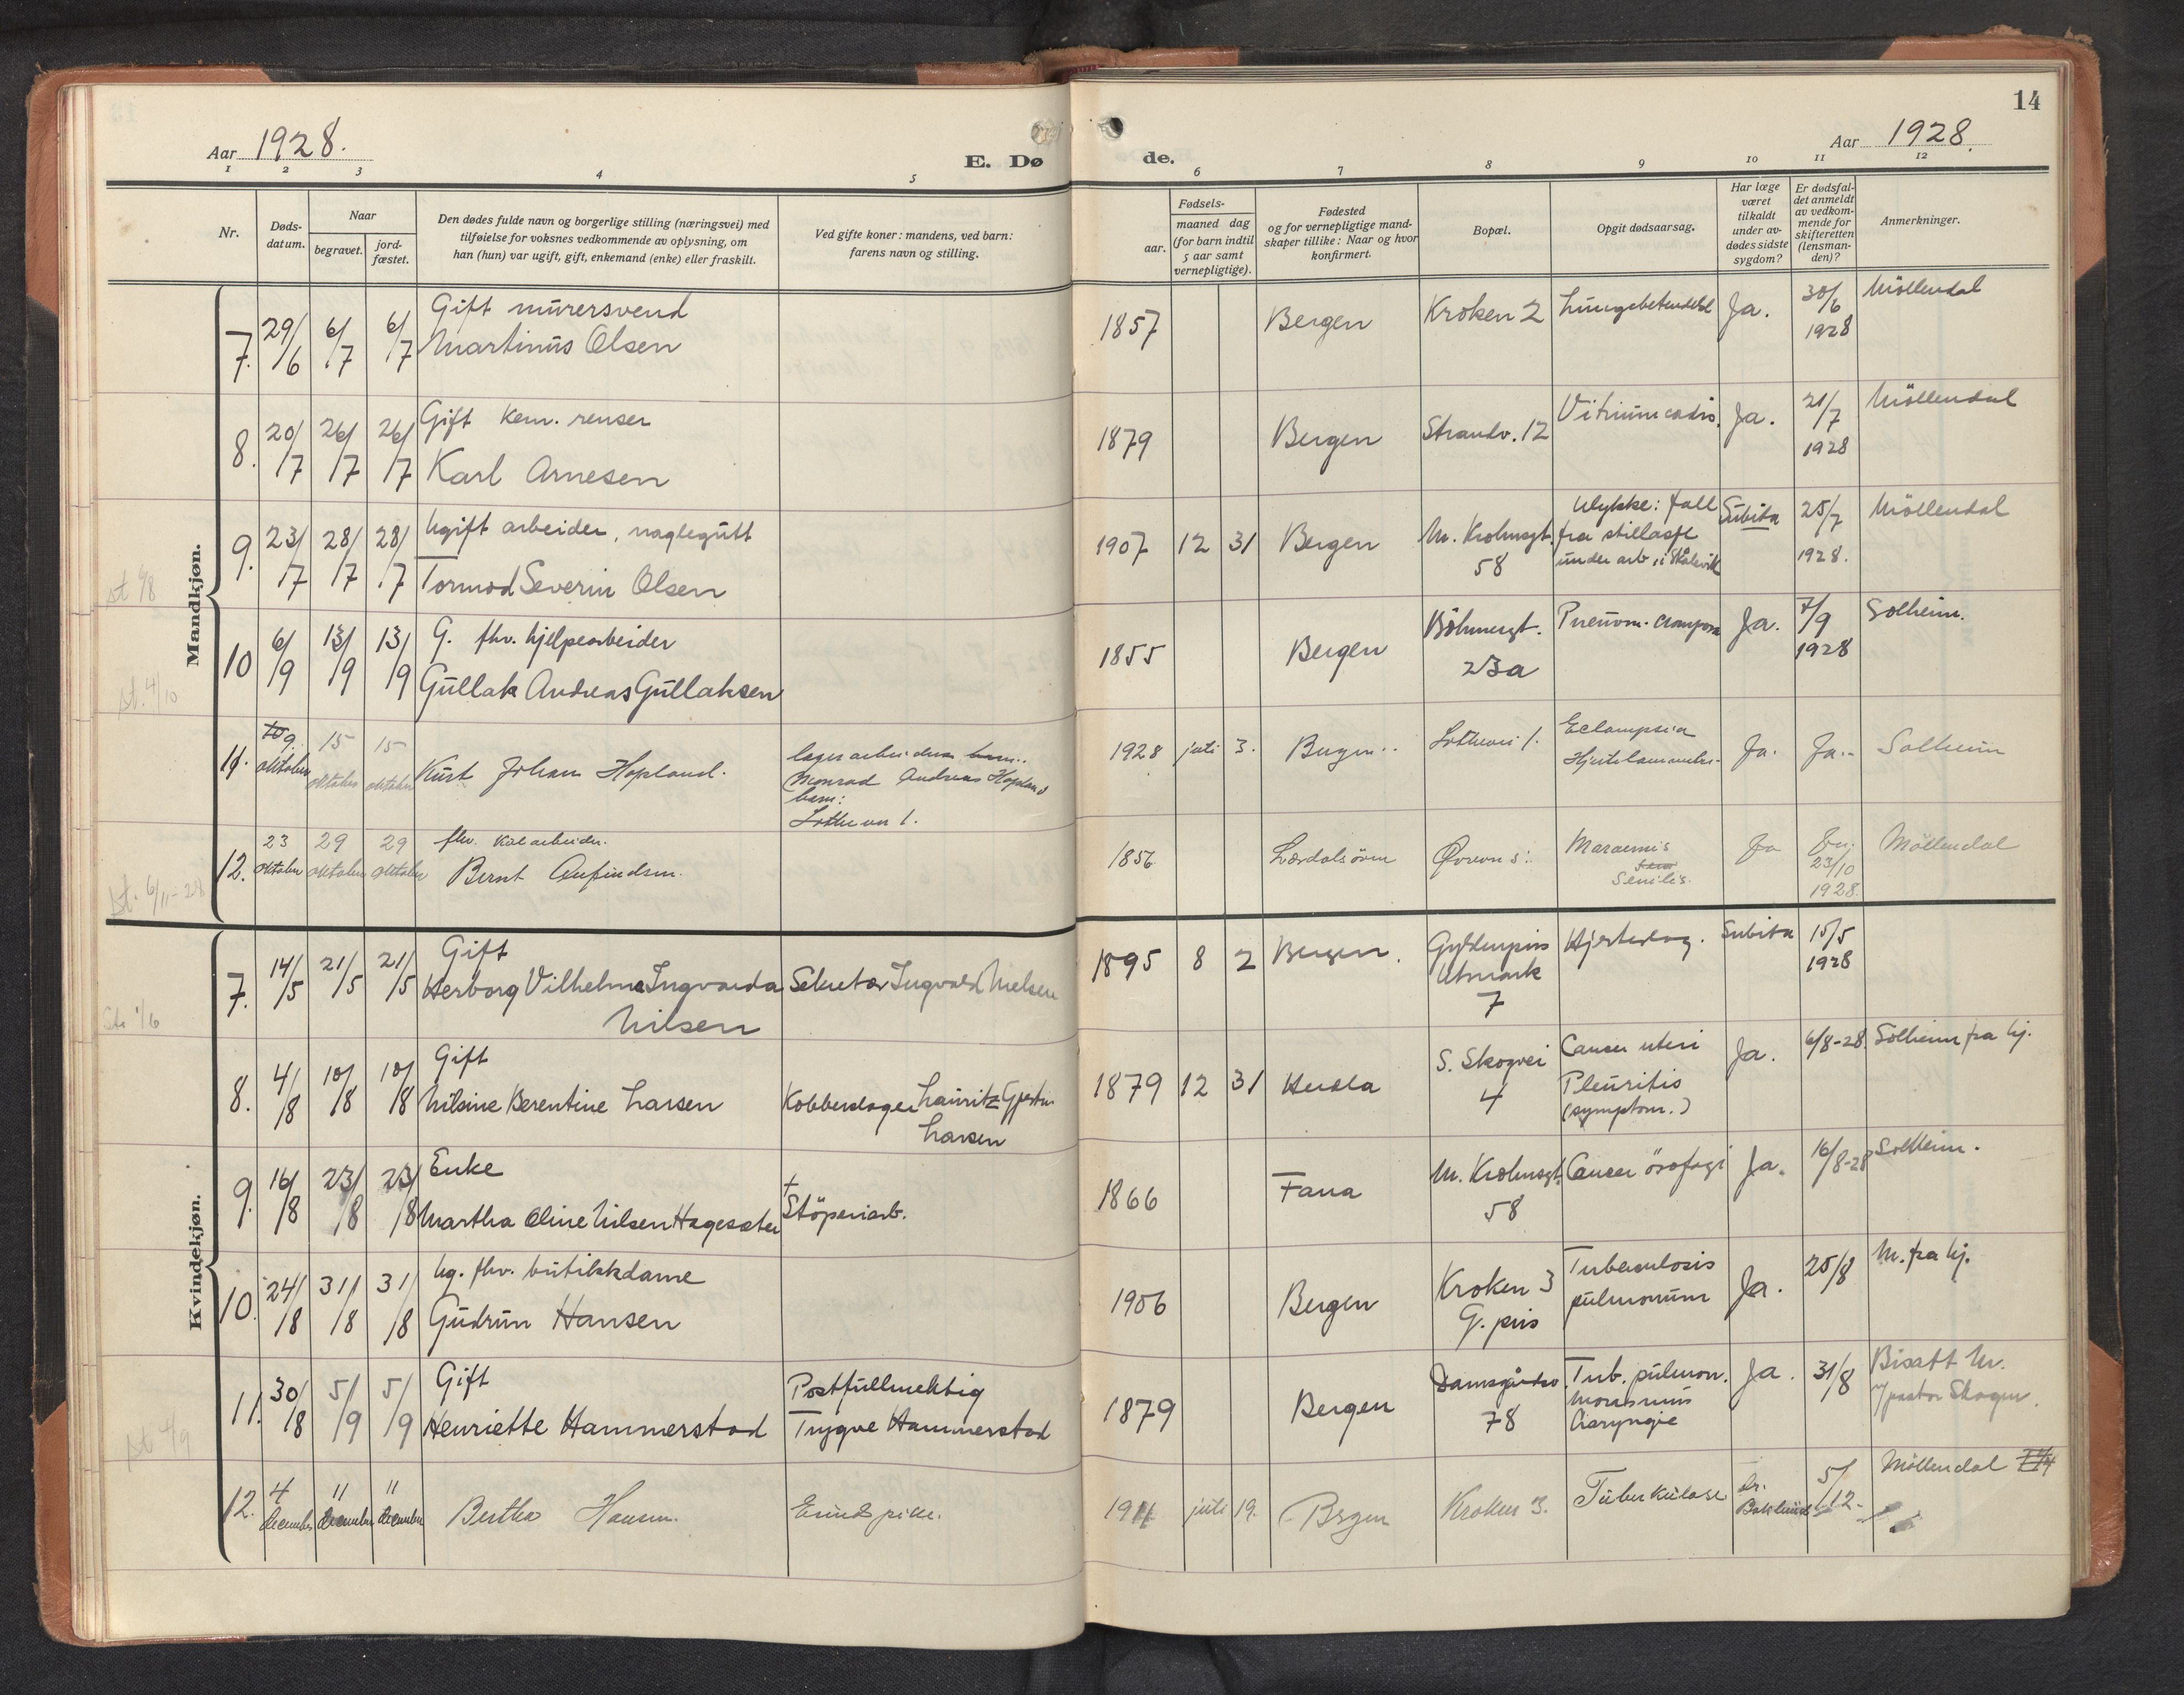 14
Aar 1928.
E. Dø
de.
Aar 1928.
1 2 3 4 5 6 7 8 9 10 11 12
Nr.
Døds-
datum.
Naar
begravet.
jord-
fæstet.
Den dødes fulde navn og borgerlige stilling (næringsvei) med
tilføielse for voksnes vedkommende av oplysning, om
han (hun) var ugift, gift, enkemand (enke) eller fraskilt.
Ved gifte koner: mandens, ved barn:
farens navn og stilling.
Fødsels-
aar.
maaned dag
(for barn indtil
5 aar samt
vernepligtige).
Fødested
og for vernepligtige mand-
skaper tillike: Naar og hvor
konfirmert.
Bopæl.
Opgit dødsaarsag.
Har læge
været
tilkaldt
under av-
dødes sidste
sygdom?
Er dødsfal-
det anmeldt
av vedkom-
mende for
skifteretten
(lensman-
den)?
Anmerkninger.
Mandkjøn.
7. 29/6 6/7 6/7 Gift murersvend
Martinus Olsen
1857 Bergen Kroken 2 Lungebetendelse Ja. 30/6 1928 Möllendal
8. 20/7 26/7 26/7 Gift kem. renser
Karl Arnesen
1879 Bergen Strandv. 12 Vitium cordis. Ja. 21/7 1928 Möllendal
9. 23/7 28/7 28/7 Ugift arbeider, naglegutt
Tormod Severin Olsen
1907 12 31 Bergen M. Krohnsgt. 58
Ulykke: fall
fra stillasje
under arb. i
Subita 25/7 1928. Möllendal
10 6/9 13/9 13/9 G. fhv. hjelpearbeider
Gullak Andreas Gullaksen
1855 Bergen Böhmergt. 23a Pneum. crouposa Ja. 7/9 1928 Solheim.
st. 4/10
11. 9 oktober 15 oktober 15 oktober Kurt Johan Hopland.
lagerarbeider
Monrad Andreas Hopland
barn:
1.
1928 juli 3. Bergen 1. Eclampsia
Ja. Ja. Solheim
12. 23 oktober 29 oktober 29 oktober fhv. kolarbeider.
Bernt Arfindsen.
1856 Lærdalsøren Marasmus
Senilis. Ja 23/10 1928. Möllendal
st. 6/11-28
Kvindekjøn.
7. 14/5 21/5 21/5 Gift
Herborg Vilhelma Ingvarda
Nilsen
Sekretær Ingvald Nielsen
1895 8 2 Bergen. Gyldenpris
Utmark
7
Hjerteslag. Subita 15/5 1928
8. 4/8 10/8 10/8 Gift
Nilsine Berentine Larsen
Kobberslager Lauritz
Larsen
1879 12 31 Herdla S. Skogvei
4
Cancer uteri
Pleuritis
(symptom.)
Ja. 6/8-28. Solheim fra hj.
9. 16/8 23/8 23/8 Enke
Martha Oline Nilsen Hagesæter
†
Stöperiarb.
1866 Fana M. Krohnsgt. 58 Cancer ösofagi Ja. 16/8-28 Solheim.
10. 24/8 31/8 31/8 Ug. fhv. butikkdame
Gudrun Hansen
1906 Bergen Kroken 3
G. pris
Tuberculosis
pulmonum
Ja. 25/8 M. fra hj.
11. 30/8 5/9 5/9 Gift
Henriette Hammerstad
Postfullmektig
Trygve Hammerstad
1879 Bergen Damsgårdsv.
78
Tub. pulmon.
Ja. 31/8 Bisatt M.
v/ pastor Skagen.
st 4/9
12. 4 december 11 december 11 december Bertha Hansen.
juli 19. Bergen Kroken 3. Tuberkulose Dr. 5/12 Möllendal